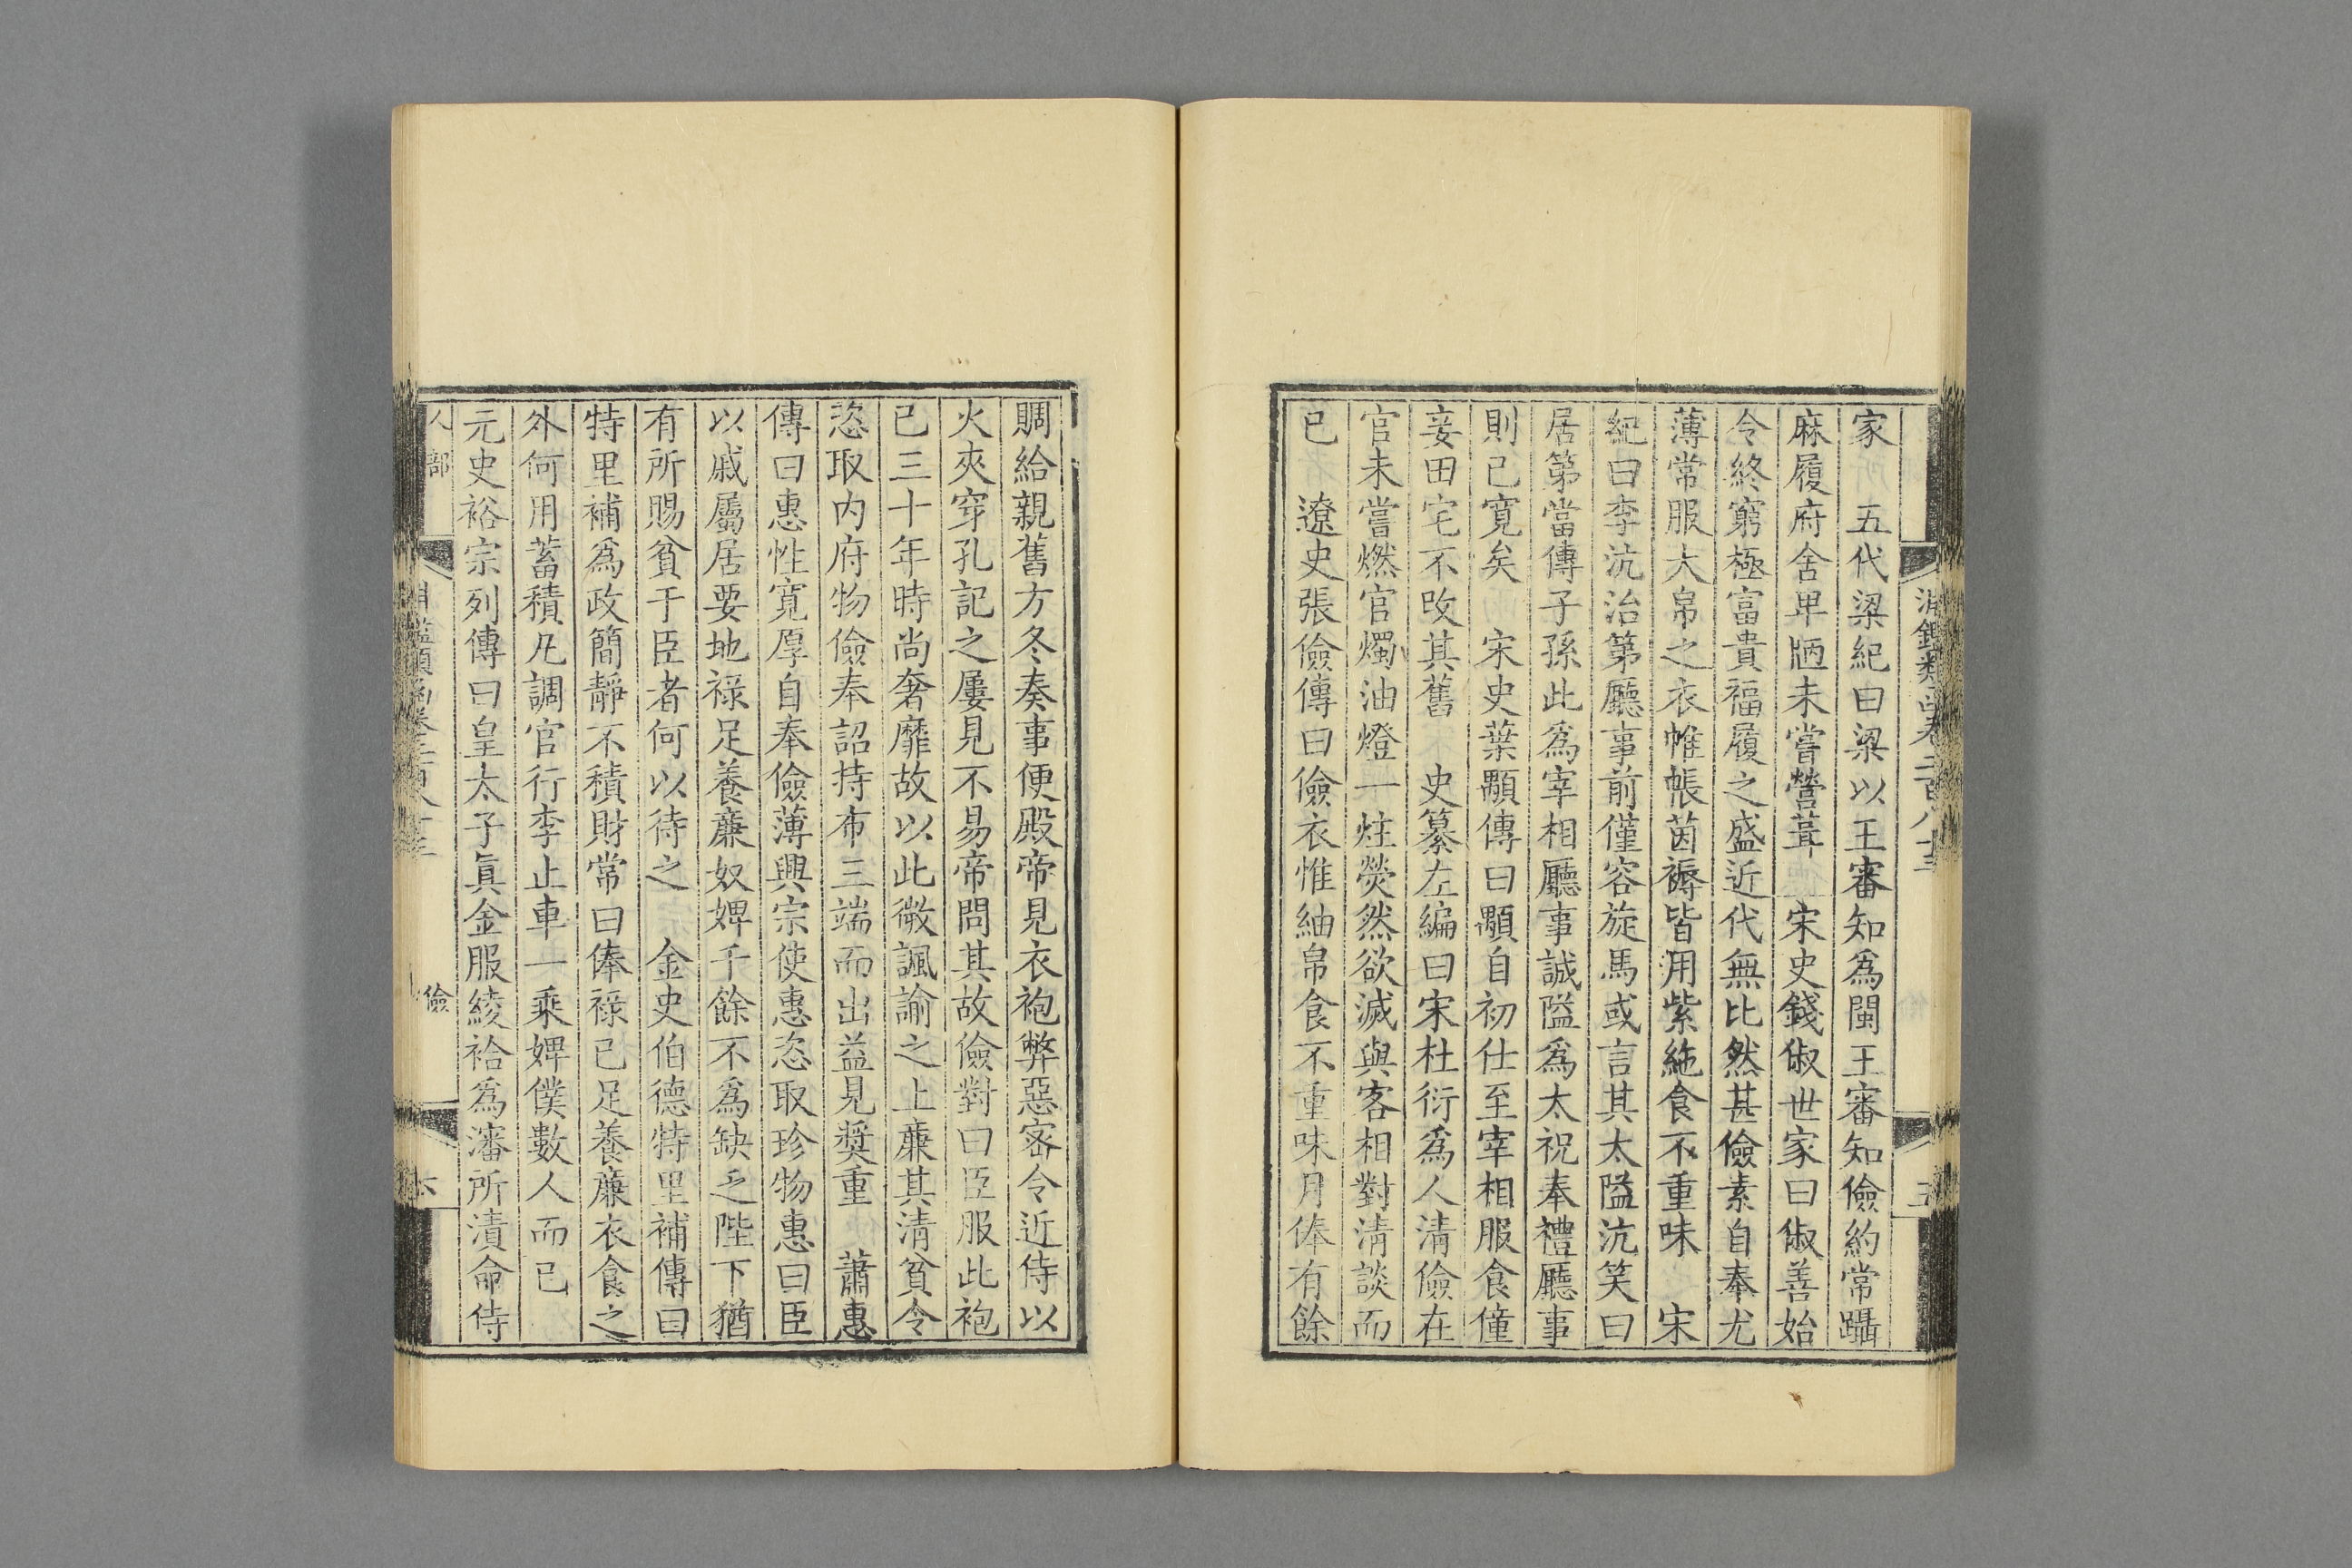 淵鑑類函卷二百八十三
五
家　五代梁紀曰梁以王審知爲閩王審知儉約常躡
麻履府舍卑陋未嘗營葺　宋史錢俶世家曰俶善始
令終窮極富貴福履之盛近代無比然甚儉素自奉尤
薄常服大帛之衣帷帳茵褥皆用紫絁食不重味　宋
紀曰李沆治第廳事前僅容旋馬或言其太隘沆笑曰
居第當傳子孫此爲宰相廳事誠隘爲太祝奉禮廳事
則已寛矣　宋史葉顒傳曰顒自初仕至宰相服食僮
妾田宅不改其舊　史纂左編曰宋杜衍爲人清儉在
官未嘗燃官燭油燈一炷熒然欲滅與客相對清談而
已　遼史張儉傳曰儉衣惟紬帛食不重味月俸有餘
賙給親舊方冬奏事便殿帝見衣袍弊惡宻令近侍以
火夾穿孔記之屢見不易帝問其故儉對曰臣服此袍
已三十年時尚奢靡故以此微諷諭之上亷其清貧令
恣取内府物儉奉詔持布三端而出益見奬重　蕭惠
傳曰惠性寛厚自奉儉薄興宗使惠恣取珍物惠曰臣
以戚屬居要地禄足養亷奴婢千餘不爲缺乏陛下猶
有所賜貧于臣者何以待之　金史伯德特里補傳曰
特里補爲政簡靜不積財常曰俸祿已足養亷衣食之
外何用蓄積凡調官行李止車一乘婢僕數人而已
元史裕宗列傳曰皇太子眞金服綾袷爲瀋所漬命侍
人部
淵鑑類函卷二百八十三
儉
六